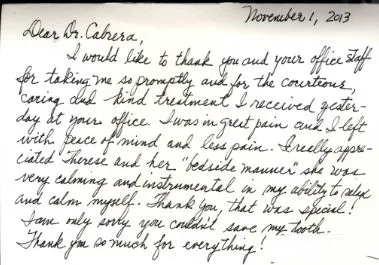 November 1, 2013
Dear Dr. Cabrera,
I would like to thank you and your office staff
for taking me so promptly and for the courteous,
caring and kind treatment I received yester-
day at your office. I was in great pain and I left
with peace of mind and less pain. I really appre-
ciated Therese and her "bedside manner" she was
very calming and instrumental in my ability to relax
and calm myself. Thank you, that was special!
I am only sorry you couldn't save my tooth.
Thank you so much for everything!